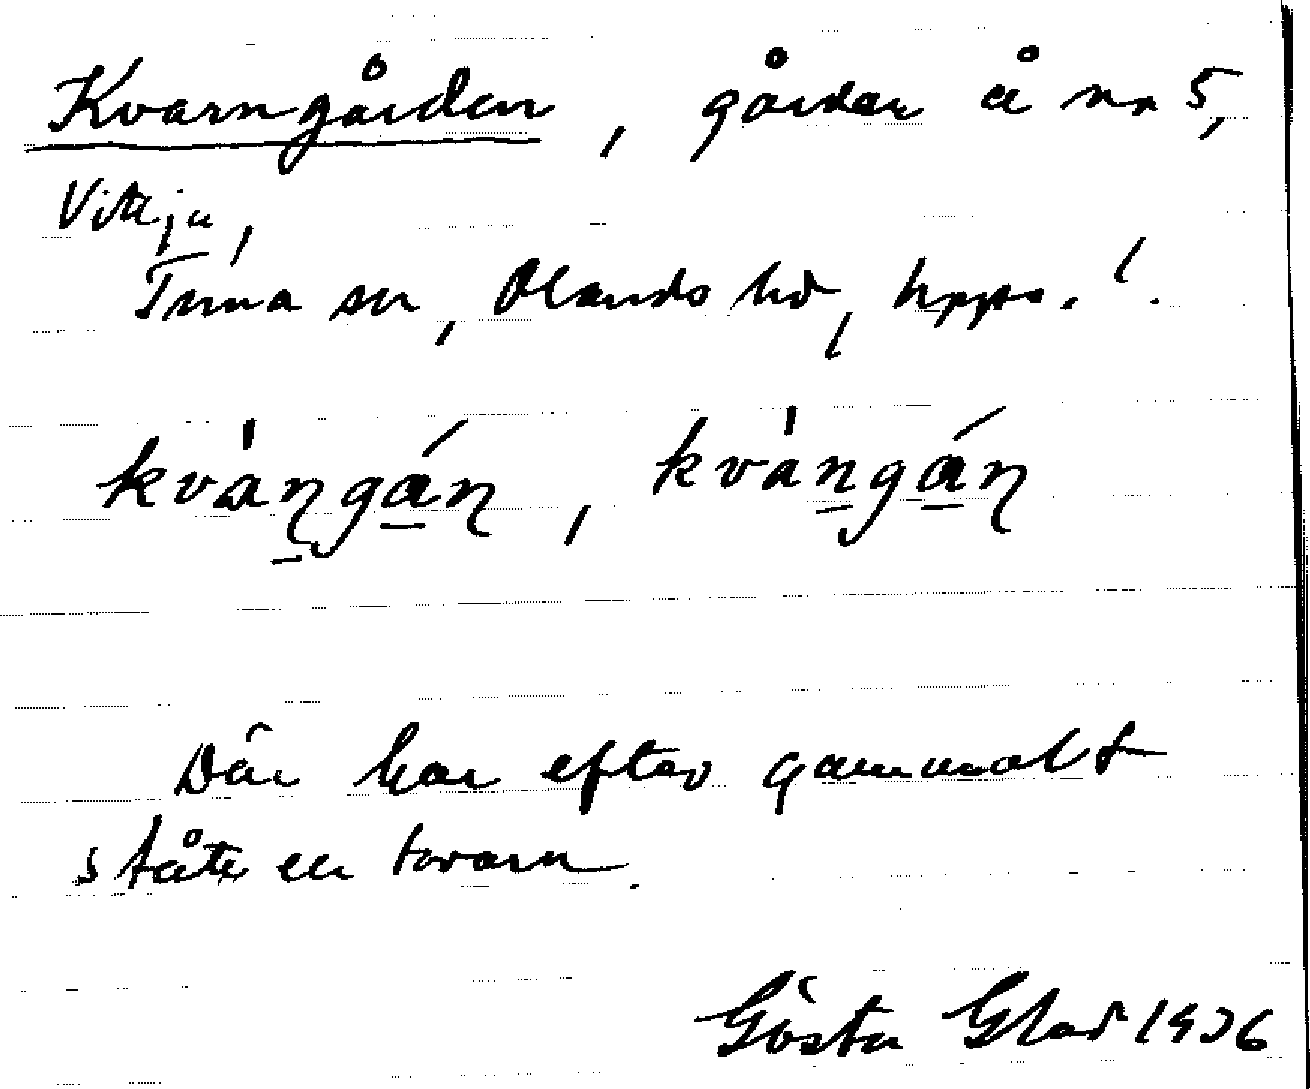 Kvarngården, gården å nr 5,
Vittja,
Tuna sn, Olands hd, Upps. l.
kvàṉgáṉ, kvàṉgáṉ
Där har efter gammalt
stått en kvarn.
Gösta Glad 1936